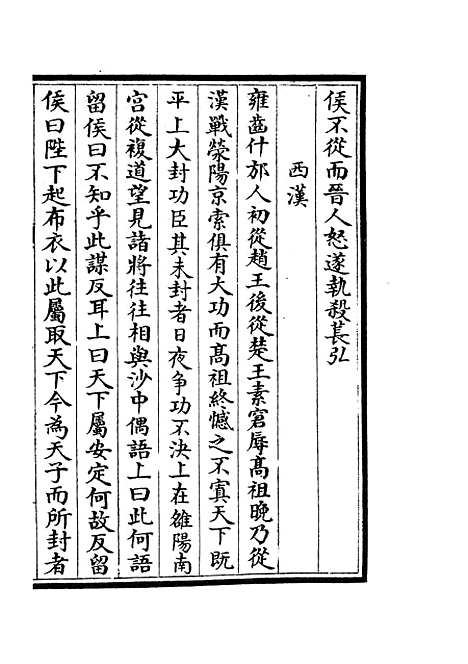 侯不從而晉人怒遂執殺萇弘
西漢
雍齒什邡人初從趙王後從楚王素窘辱髙祖晚乃從
漢戰滎陽京索俱有大功而髙祖終憾之不寘天下既
平上大封功臣其未封者日夜争功不決上在雒陽南
宫從複道望見諸將往往相與沙中偶語上曰此何語
留侯曰不知乎此謀反耳上曰天下屬安定何故反留
侯曰陛下起布衣以此屬取天下今為天子而所封者